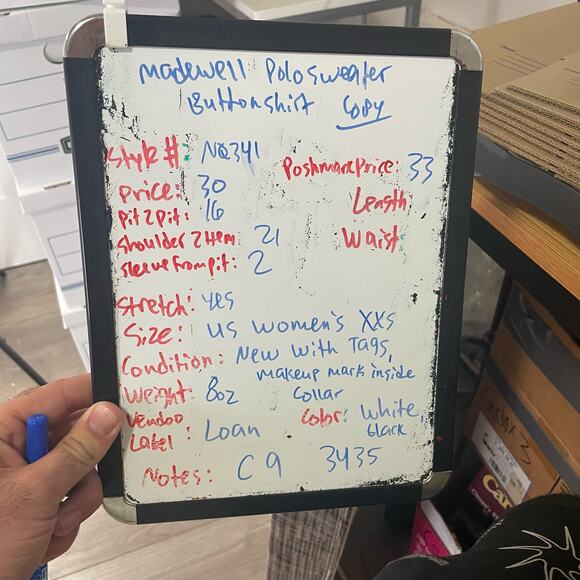 Madewell Polo Sweater
Button Shirt Copy
Style #: NQ341
Poshmark Price: 33
Price: 30
Pit 2 pit: 16
Length
Shoulder 2 Hem 21
Waist
Sleeve from pit: 2
Stretch: yes
Size: US Women's XXS
Condition: New With Tags,
makeup mark inside
collar
Weight 8oz
Color: White,
black
Vendoo
Label : Loan
Notes: C9 3435